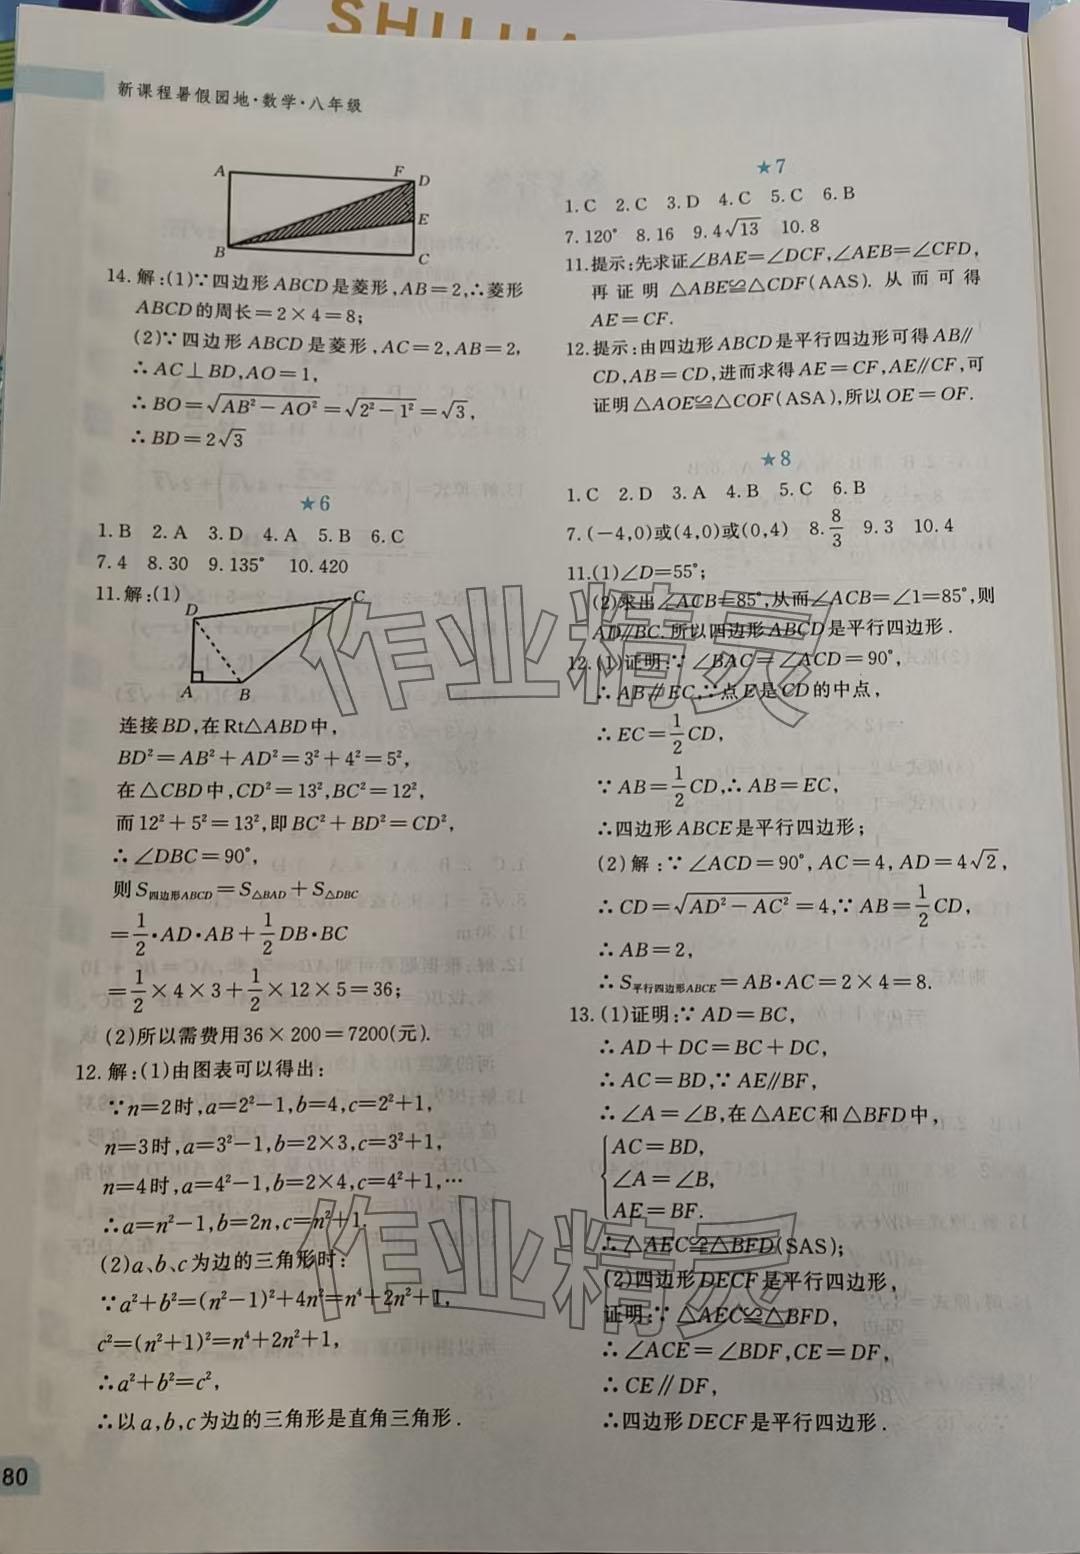 SHUJUA
新课程暑假园地·数学·八年级
A F D
E
B C
14.解:(1)∵四边形ABCD是菱形,AB=2,∴菱形
ABCD的周长=2×4=8;
(2)∵四边形ABCD是菱形,AC=2,AB=2,
∴AC⊥BD,AO=1,
∴BO=√(AB²-AO²)=√(2²-1²)=√3,
∴BD=2√3
★6
1.B 2.A 3.D 4.A 5.B 6.C
7.4 8.30 9.135° 10.420
11.解:(1)
D C
A B
连接BD,在Rt△ABD中,
BD²=AB²+AD²=3²+4²=5²,
在△CBD中,CD²=13²,BC²=12²,
而12²+5²=13²,即BC²+BD²=CD²,
∴∠DBC=90°,
则S四边形ABCD=S△BAD+S△DBC
=1/2·AD·AB+1/2DB·BC
=1/2×4×3+1/2×12×5=36;
(2)所以需费用36×200=7200(元).
12.解:(1)由图表可以得出:
∵n=2时,a=2²-1,b=4,c=2²+1,
n=3时,a=3²-1,b=2×3,c=3²+1,
n=4时,a=4²-1,b=2×4,c=4²+1,…
∴a=n²-1,b=2n,c=n²+1.
(2)a、b、c为边的三角形时:
∵a²+b²=(n²-1)²+4n²=n⁴+2n²+1,
c²=(n²+1)²=n⁴+2n²+1,
∴a²+b²=c²,
∴以a,b,c为边的三角形是直角三角形.
80
★7
1.C 2.C 3.D 4.C 5.C 6.B
7.120° 8.16 9.4√13 10.8
11.提示:先求证∠BAE=∠DCF,∠AEB=∠CFD,
再证明△ABE≌△CDF(AAS).从而可得
AE=CF.
12.提示:由四边形ABCD是平行四边形可得AB∥
CD,AB=CD,进而求得AE=CF,AE∥CF,可
证明△AOE≌△COF(ASA),所以OE=OF.
★8
1.C 2.D 3.A 4.B 5.C 6.B
7.(-4,0)或(4,0)或(0,4) 8.8/3 9.3 10.4
11.(1)∠D=55°;
(2)求出∠ACB=85°,从而∠ACB=∠1=85°,则
AD∥BC.所以四边形ABCD是平行四边形.
12.(1)证明:∵∠BAC=∠ACD=90°,
∴AB∥EC,∵点E是CD的中点,
∴EC=1/2CD,
∵AB=1/2CD,∴AB=EC,
∴四边形ABCE是平行四边形;
(2)解:∵∠ACD=90°,AC=4,AD=4√2,
∴CD=√(AD²-AC²)=4,∵AB=1/2CD,
∴AB=2,
∴S平行四边形ABCE=AB·AC=2×4=8.
13.(1)证明:∵AD=BC,
∴AD+DC=BC+DC,
∴AC=BD,∵AE∥BF,
∴∠A=∠B,在△AEC和△BFD中,
AC=BD,
∠A=∠B,
AE=BF.
∴△AEC≌△BFD(SAS);
(2)四边形DECF是平行四边形,
证明:∵△AEC≌△BFD,
∴∠ACE=∠BDF,CE=DF,
∴CE∥DF,
∴四边形DECF是平行四边形.
作业精灵
作业精灵